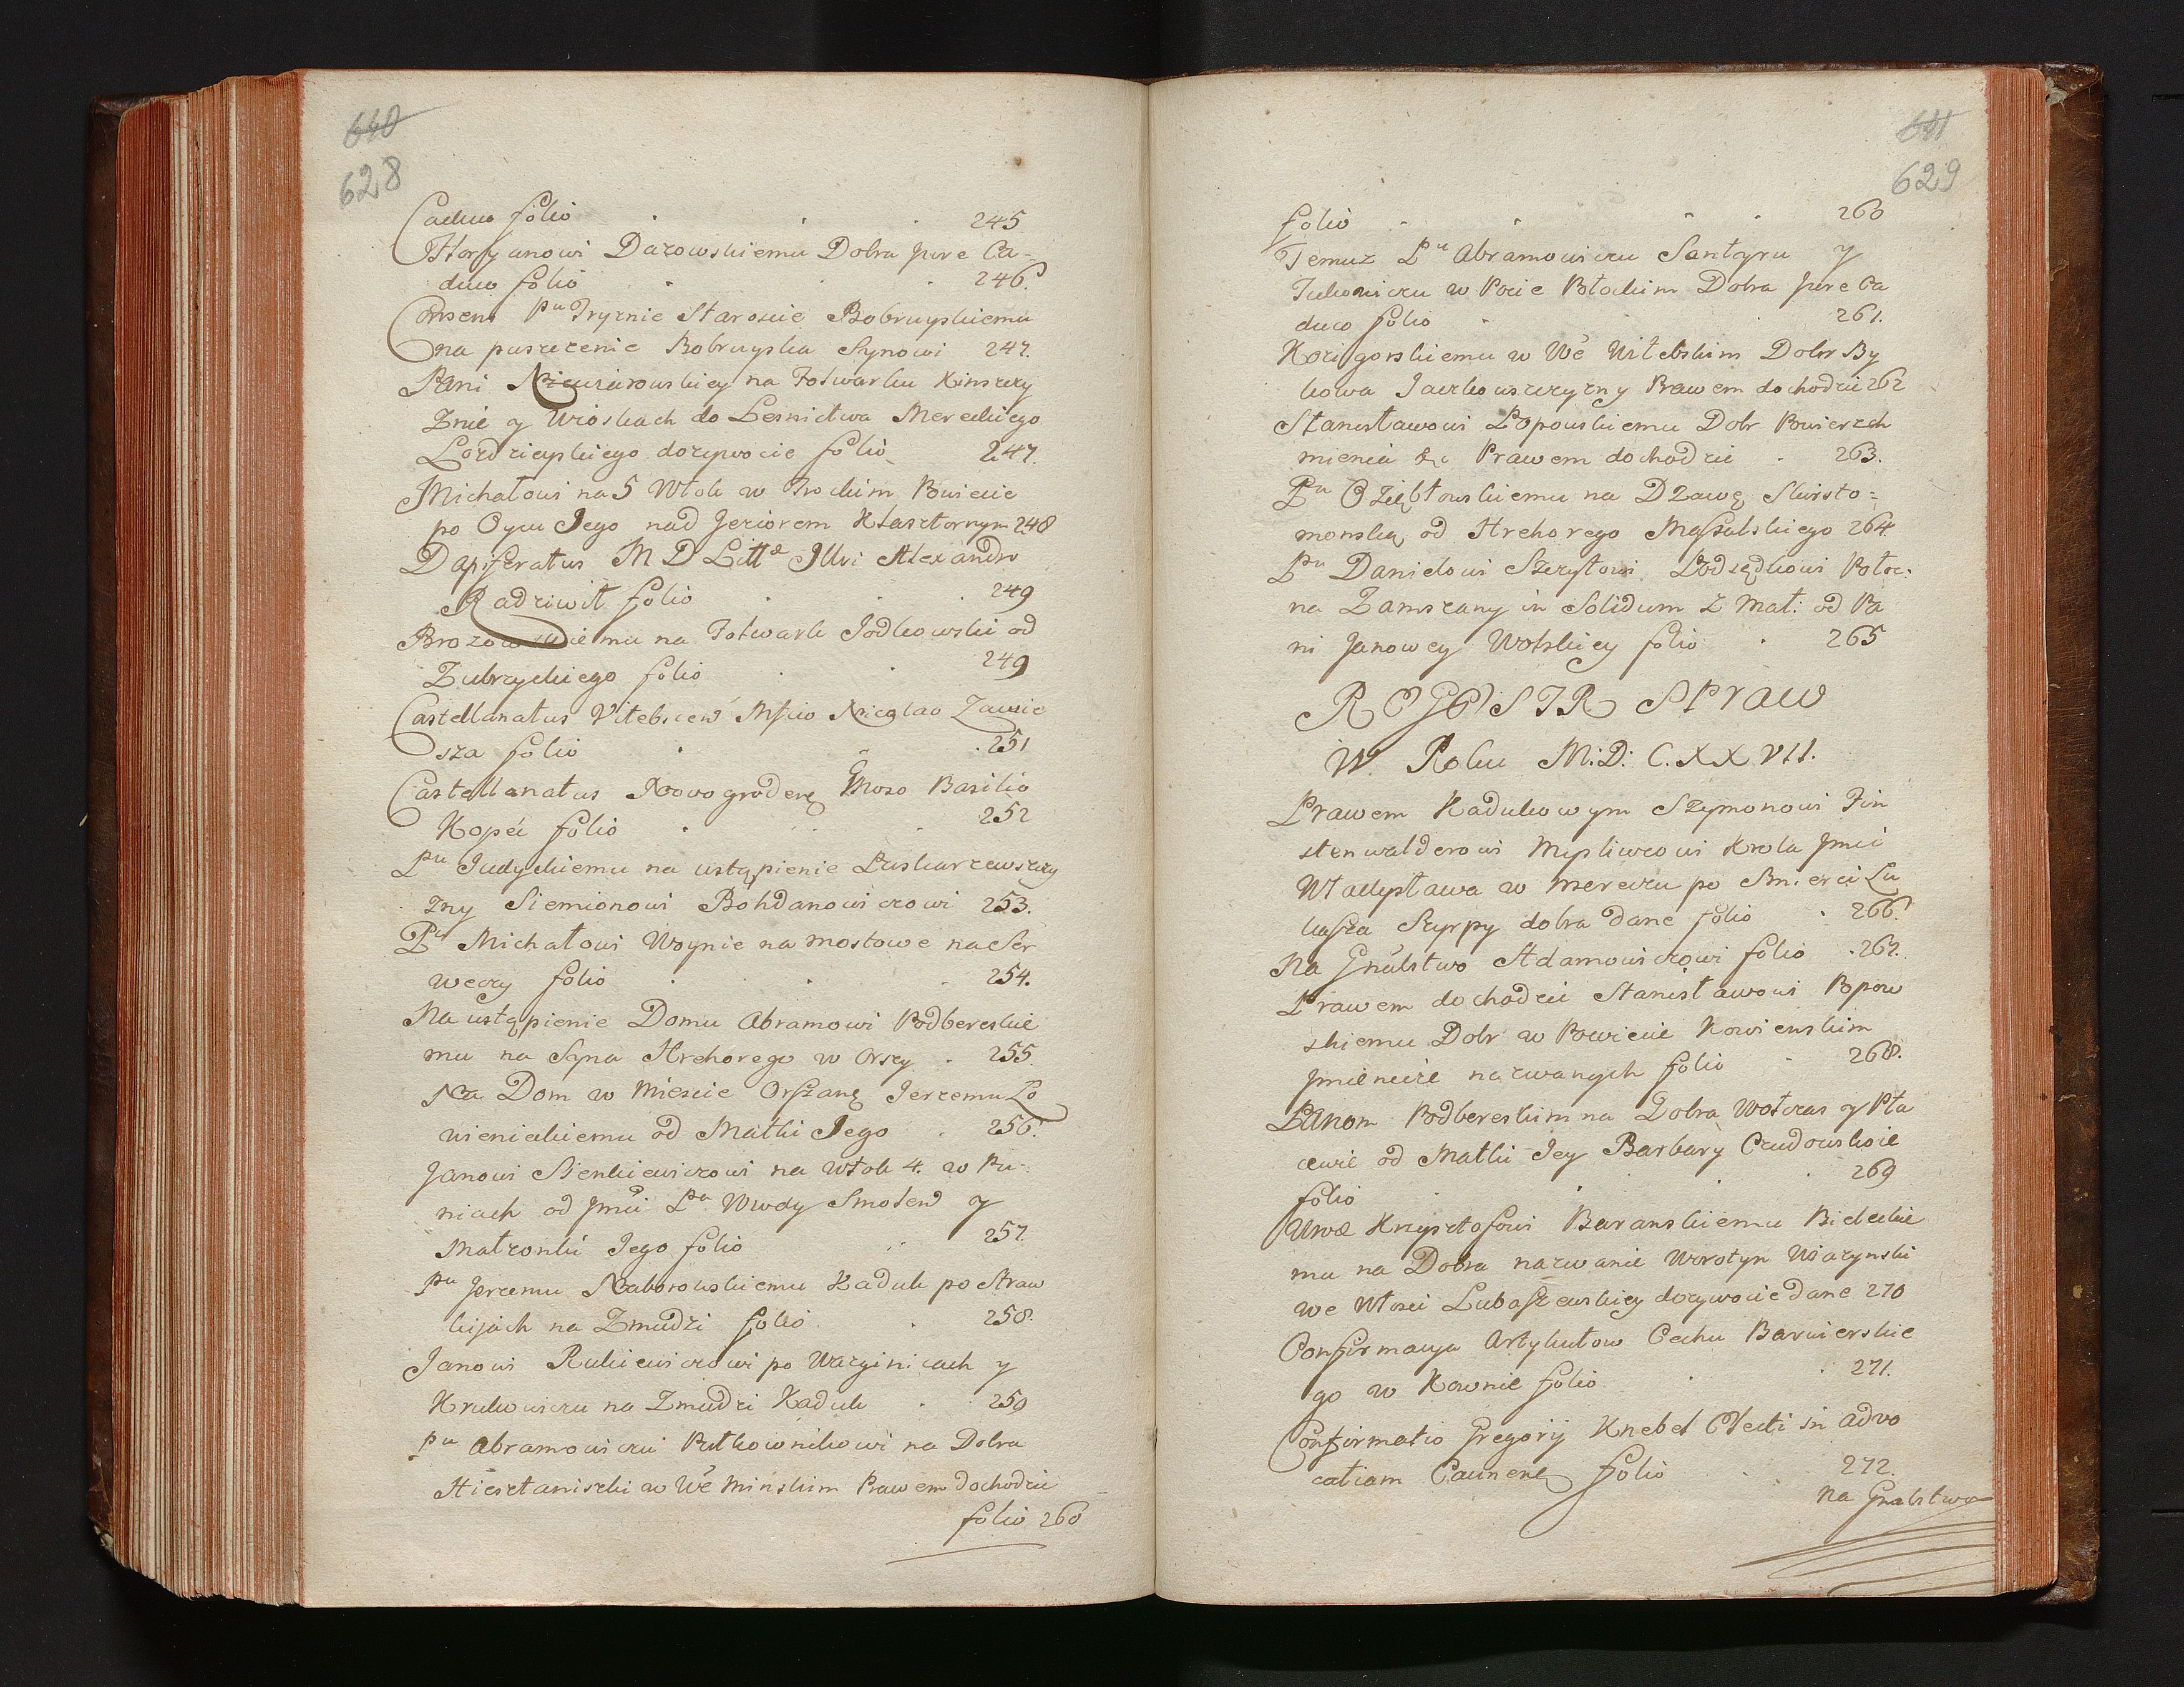 640
628
Caduco folio 245
Floryanowi Darowskiemu Dobra Jure Ca-
duco folio 246.
Consens Pu Tryznie Staroscie Bobruyskiemu
na puszczenie Bobruyska Synowi 247.
Pani na Folwarku
Znie y Wioskach do Lesnictwa Mereckiego
Lozdzieyskiego dozywocie folio 247.
Michałowi na 5 Włok w Trockim Powiecie
po Oycu Jego nad Jeziorem Klasztornym 248
Dapiferatus M D Litt Illri Alexandro
Radziwił folio 249
Brozowskiemu na Folwark Jodkowski od
Zubrzyckiego folio 249
Castellanatus Vitebscen Mfico Nicolao Zawie
sza folio 251
Castellanatus Nowogroden Gnroso Basilio
Kopéi folio 252
Pu Judyckiemu na ustąpienie Puskarzewszczy
zny Siemionowi Bohdanowiczowi 253.
Pu Michałowi Woynie na mostowe na Ser
weczy folio 254.
Na ustąpienie Domu Abramowi Podbereskie
mu na Syna Hrehorego w Orszy 255
Na Dom w Miescie Orszanę Jerzemu Ło
wienieckiemu od Matki Jego 256.
Janowi Sienkiewiczowi na włok 4. w Pu-
niach od Jmci Pa Wwdy Smolen y
Małzonki Jego folio 257.
Pu Jerzemu Naborowskiemu Kaduk po Straw
kijach na Zmudzi folio 258.
Janowi Rukiewiczowi po Warginicach y
Krukowiczu na Zmudzi Kaduk 259
Pu Abramowiczu Pułkownikowi na Dobra
Hiesztaniszki w Wé Minskim Prawem dochodzic
folio 260
641
629
folio 260
Temuz Pu Abramowiczu Santyru y
Jukowiczu w Pocie Płockim Dobra Jure Ca
duco folio 261.
Kozigorskiemu w Wé Witebskim Dobr By
kowa Jaczkowszczyzny Prawem dochodzic 262
Stanisławowi Popowskiemu Dobr Powierzch
mienia &c Prawem dochodzic 263.
Pu Oziębłowskiemu na Dzawę Skirsto=
monską od Hrehorego Massalskiego 264
Pu Danielowi Szczytowi Podsędkowi Połoc:
na Zamszany in Solidum z Mał: od Pa
ni Janowey Wolskiey folio 265
REGESTR SPraw
W Roku M:D: C. XXVII.
Prawem Kadukowym Szymonowi Fin
stenwalderowi Mysliwcowi Krola Jmci
Władysława w Mereczu po Smierci Łu
kasza Szyrpy dobra dane folio 266.
Na Gnulstwo Adamowiczowi folio 267.
Prawem dochodzic Stanisławowi Popow
skiemu Dobr w Powiecie Kowienskim
Jmieneize nazwanych folio 268.
Panom Podbereskim na Dobra Wołczas y Pła
cewie od Matki Jey Barbary Czudowskie
folio 269
Urod Krzysztofowi Baranskiemu Bieleckie
mu na Dobra nazwanie Worotyn Wiazynski
we Włosci Lubaszewskiey dozywocie dane 270
Confirmacya Artykułow Cechu Barwierskie
go w Kownie folio 271.
Confirmatio Gregorij Knebel Electi in Advo
catiam Caunen folio 272.
Na Gnulstwo